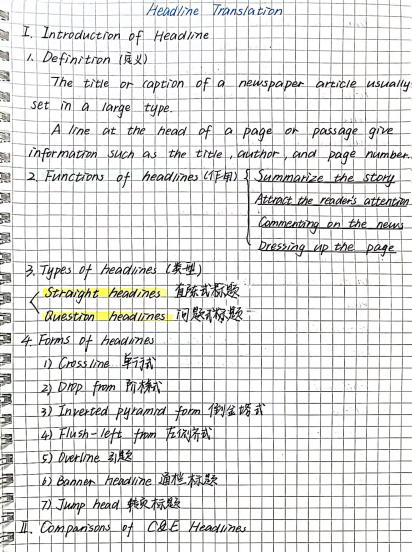 Headline Translation
I. Introduction of Headline
1. Definition (定义)
The title or caption of a newspaper article usually
set in a large type.
A line at the head of a page or passage give
information such as the title, author, and page number.
2. Functions of headlines (作用)
Summarize the story
Attract the reader's attention
Commenting on the news
Dressing up the page
3. Types of headlines (类型)
Straight headlines 直陈式标题
Question headlines 问题式标题
4. Forms of headlines
1) Crossline 单行式
2) Drop from 阶梯式
3) Inverted pyramid form 倒金塔式
4) Flush-left from 左侧齐式
5) Overline 引题
6) Banner headline 通栏标题
7) Jump head 转页标题
II. Comparisons of C&E Headlines